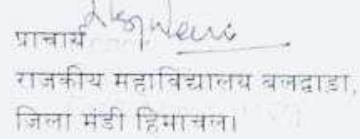 प्राचार्य
राजकीय महाविद्यालय बलद्वाड़ा,
जिला मंडी हिमाचल।